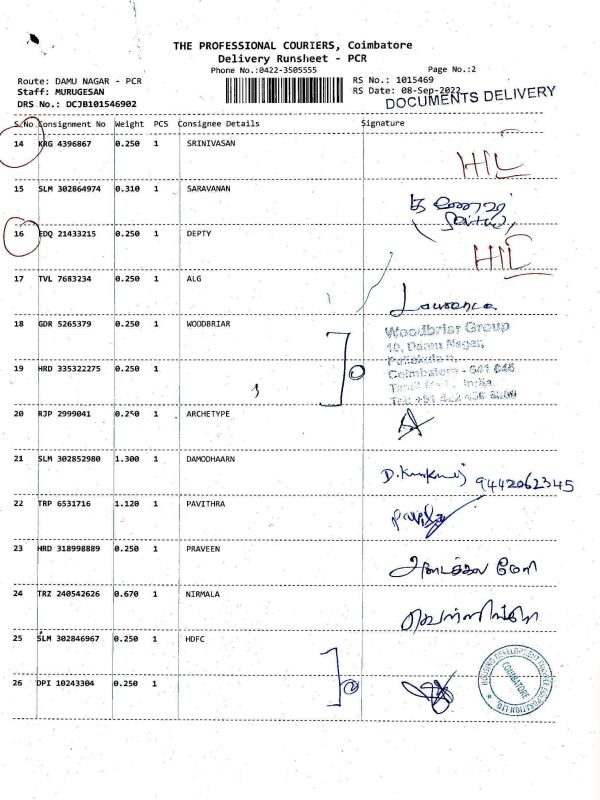 THE PROFESSIONAL COURIERS, Coimbatore
Delivery Runsheet - PCR
Phone No.:0422-3505555
Page No.:2
Route: DAMU NAGAR - PCR
Staff: MURUGESAN
DRS No.: DCJB101546902
RS No.: 1015469
RS Date: 08-Sep-2022
DOCUMENTS DELIVERY
S/No Consignment No Weight PCS Consignee Details Signature
14 KRG 4396867 0.250 1 SRINIVASAN
15 SLM 302864974 0.310 1 SARAVANAN
16 EDQ 21433215 0.250 1 DEPTY
17 TVL 7683234 0.250 1 ALG
Lawrence
18 GDR 5265379 0.250 1 WOODBRIAR
Woodbriar Group
10, Damu Nagar,
Coimbatore - 641 045
19 HRD 335322275 0.250 1
20 RJP 2999041 0.250 1 ARCHETYPE
21 SLM 302852980 1.300 1 DAMODHAARN
9442062345
22 TRP 6531716 1.120 1 PAVITHRA
23 HRD 318998889 0.250 1 PRAVEEN
24 TRZ 240542626 0.670 1 NIRMALA
25 SLM 302846967 0.250 1 HDFC
26 DPI 10243304 0.250 1
HOUSING DEVELOPMENT FINANCE CORPORATION LTD
COIMBATORE